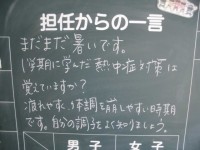 担任からの一言
まだまだ暑いです。
1学期に学んだ熱中症対策は
覚えていますか?
疲れやすく体調を崩しやすい時期
です。自分の調子をよく知りましょう。
男子 女子